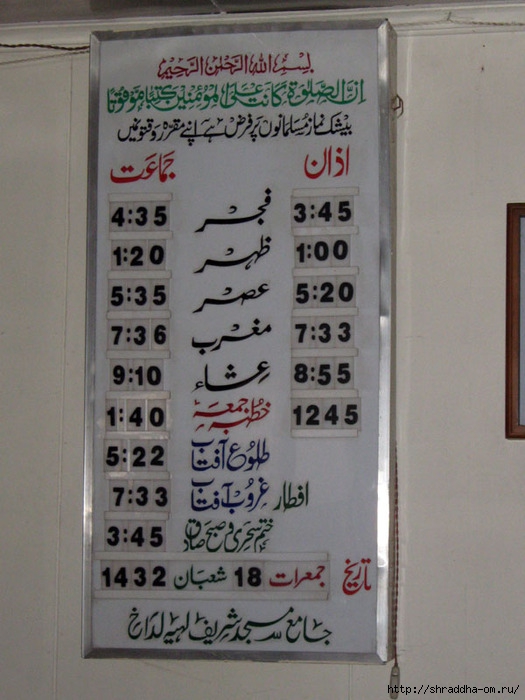 بسم اللہ الرحمٰن الرحیم
ان الصلوٰۃ کانت علی المومنین کتٰبا موقوتا
بیشک نماز مسلمانوں پر فرض ہے اپنے مقررہ وقتو نمیں
اذان جماعت
3:45 فجر 4:35
1:00 ظہر 1:20
5:20 عصر 5:35
7:33 مغرب 7:36
8:55 عشاء 9:10
1245 خطبہ جمعہ 1:40
طلوع آفتاب 5:22
افطار غروب آفتاب 7:33
ختم سحری و صبح صادق 3:45
تاریخ جمعرات 18 شعبان 1432
جامع مسجد شریف لیہہ لداخ
http://shraddha-om.ru/